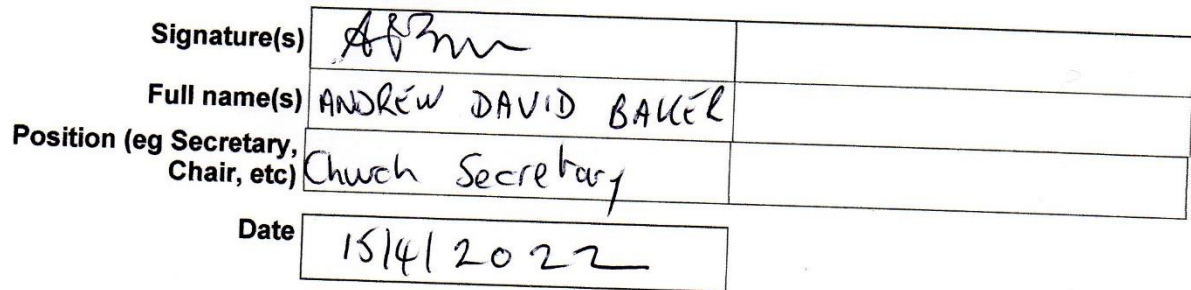 Signature(s)
Full name(s) ANDREW DAVID BAKER
Position (eg Secretary,
Chair, etc) Church Secretary
Date 15/4/2022